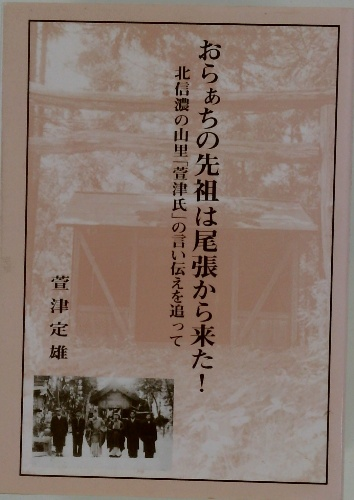 おらぁちの先祖は尾張から来た！
北信濃の山里「萱津氏」の言い伝えを追って
萱津定雄